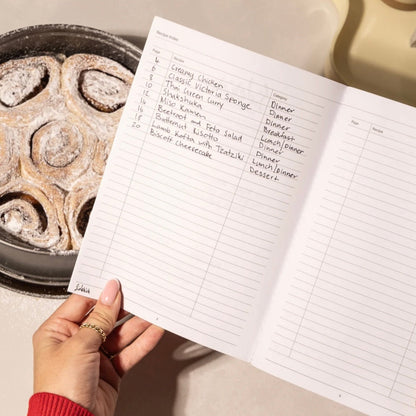 Recipe Index
Page
Recipe
Category
4
6
8
10
12
14
16
18
20
Creamy Chicken
Classic Victoria Sponge
Thai Green Curry
Shakshuka
Miso Ramen
Beetroot and Feta Salad
Butternut Risotto
Lamb Kofta with Tzatziki
Biscoff Cheesecake
Dinner
Dinner
Dinner
Breakfast
Lunch/Dinner
Dinner
Lunch/Dinner
Dessert
Page
Recipe